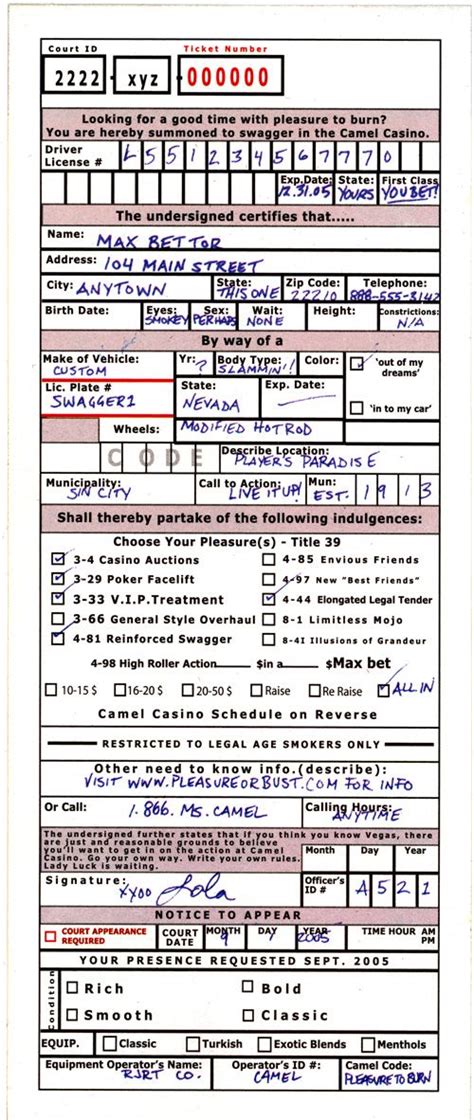 Court ID Ticket Number
2222 xyz 000000
Looking for a good time with pleasure to burn?
You are hereby summoned to swagger in the Camel Casino.
Driver
License # L 5 5 1 2 3 4 5 6 7 7 7 0
Exp.Date: 12.31.05 State: YOURS First Class YOU BET!
The undersigned certifies that.....
Name: MAX BETTOR
Address: 104 MAIN STREET
City: ANYTOWN State: THIS ONE Zip Code: 22210 Telephone: 888-555-3142
Birth Date: Eyes: SMOKEY Sex: PERHAPS Wait: NONE Height: Constrictions: N/A
By way of a
Make of Vehicle: CUSTOM Yr: ? Body Type: SLAMMIN'! Color: 'out of my dreams'
Lic. Plate # SWAGGER1 State: NEVADA Exp. Date: 'in to my car'
Wheels: MODIFIED HOTROD
CODE Describe Location: PLAYER'S PARADISE
Municipality: SIN CITY Call to Action: LIVE IT UP! Mun: EST. 1 9 1 3
Shall thereby partake of the following indulgences:
Choose Your Pleasure(s) - Title 39
3-4 Casino Auctions 4-85 Envious Friends
3-29 Poker Facelift 4-97 New "Best Friends"
3-33 V.I.P.Treatment 4-44 Elongated Legal Tender
3-66 General Style Overhaul 8-1 Limitless Mojo
4-81 Reinforced Swagger 8-4I Illusions of Grandeur
4-98 High Roller Action $in a $Max bet
10-15 $ 16-20 $ 20-50 $ Raise Re Raise ALL IN
Camel Casino Schedule on Reverse
RESTRICTED TO LEGAL AGE SMOKERS ONLY
Other need to know info.(describe):
VISIT WWW.PLEASUREORBUST.COM FOR INFO
Or Call: 1.866.MS.CAMEL Calling Hours: ANYTIME
The undersigned further states that if you think you know Vegas, there
are just and reasonable grounds to believe
you'll want to get in on the action at Camel
Casino. Go your own way. Write your own rules.
Lady Luck is waiting.
Month Day Year
Signature: xxoo Lola Officer's ID # A 5 2 1
NOTICE TO APPEAR
COURT APPEARANCE REQUIRED COURT DATE MONTH 9 DAY 1 YEAR 2005 TIME HOUR AM PM
YOUR PRESENCE REQUESTED SEPT. 2005
Condition
Rich Bold
Smooth Classic
EQUIP. Classic Turkish Exotic Blends Menthols
Equipment Operator's Name: Operator's ID #: Camel Code:
RJRT CO. CAMEL PLEASURE TO BURN